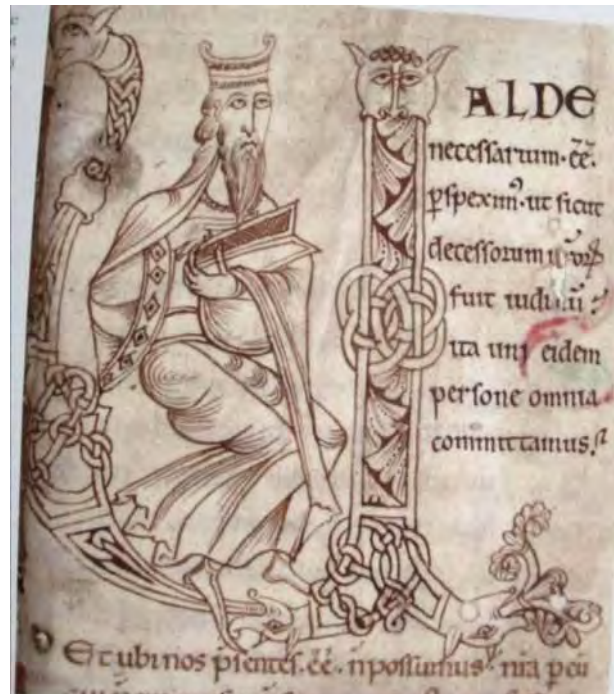 ALDE
necessarium·ēē·
ꝑspexim᷒·ut sicut
decessorum
fuit iudiciū
ita uni eidem
persone omnia
committamus.
Et ubi nos p̄sentes·ēē·n̄ possumus·nr̄a